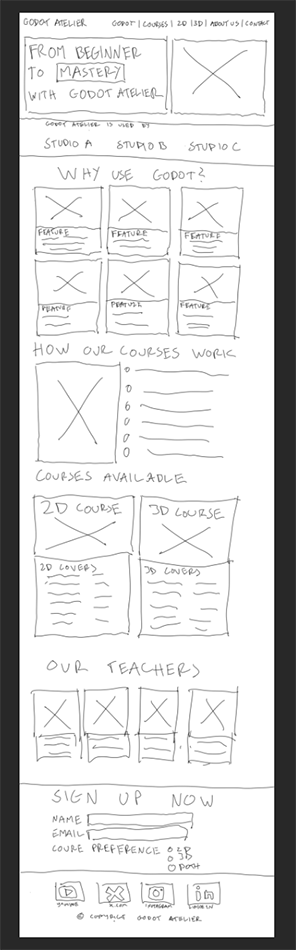 GODOT ATELIER
GODOT | COURSES | 2D | 3D | ABOUT US | CONTACT
FROM BEGINNER
TO MASTERY
WITH GODOT ATELIER
GODOT ATELIER IS USED BY
STUDIO A STUDIO B STUDIO C
WHY USE GODOT?
FEATURE FEATURE FEATURE
FEATURE FEATURE FEATURE
HOW OUR COURSES WORK
COURSES AVAILABLE
2D COURSE 3D COURSE
2D COVERS 3D COVERS
OUR TEACHERS
SIGN UP NOW
NAME
EMAIL
COURE PREFERENCE
2D
3D
BOTH
X.COM INSTAGRAM
in
© COPYRIGE GODOT ATELIER